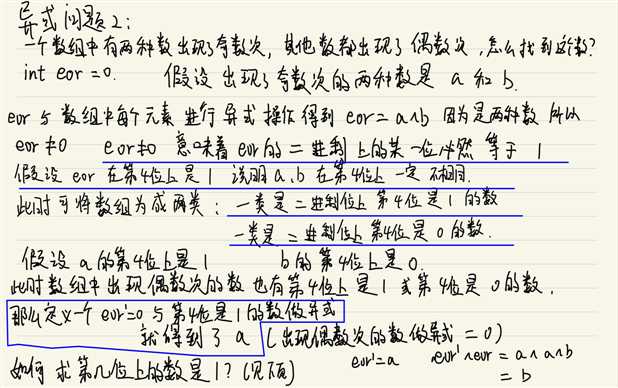 异或问题2:
一个数组中有两种数出现了奇数次, 其他数都出现了偶数次, 怎么找到这两个数?
int eor = 0. 假设出现了奇数次的两种数是 a 和 b.
eor 与数组中每个元素进行异或操作得到 eor = a∧b 因为是两种数 所以
eor ≠ 0 eor ≠ 0 意味着 eor 的二进制上的某一位必然等于 1
假设 eor 在第4位上是 1 说明 a、b 在第4位上一定不相同.
此时可将数组分为成两类: 一类是二进制位上第4位是 1 的数
一类是二进制位上第4位是 0 的数.
假设 a 的第4位上是 1 b 的第4位上是 0.
此时数组中出现偶数次的数也有第4位上是 1 或第4位是 0 的数.
那么定义一个 eor'=0 与第4位是 1 的数做异或
就得到了 a (出现偶数次的数做异或 = 0)
如何求第几位上的数是 1? (见下面) eor'=a eor'∧eor = a∧a∧b
= b